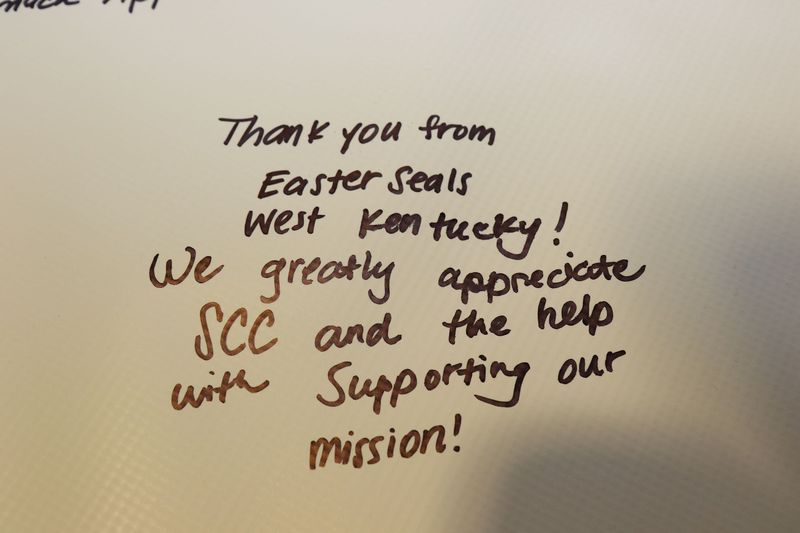 Thank you from
Easter Seals
West Kentucky!
We greatly appreciate
SCC and the help
with Supporting our
mission!